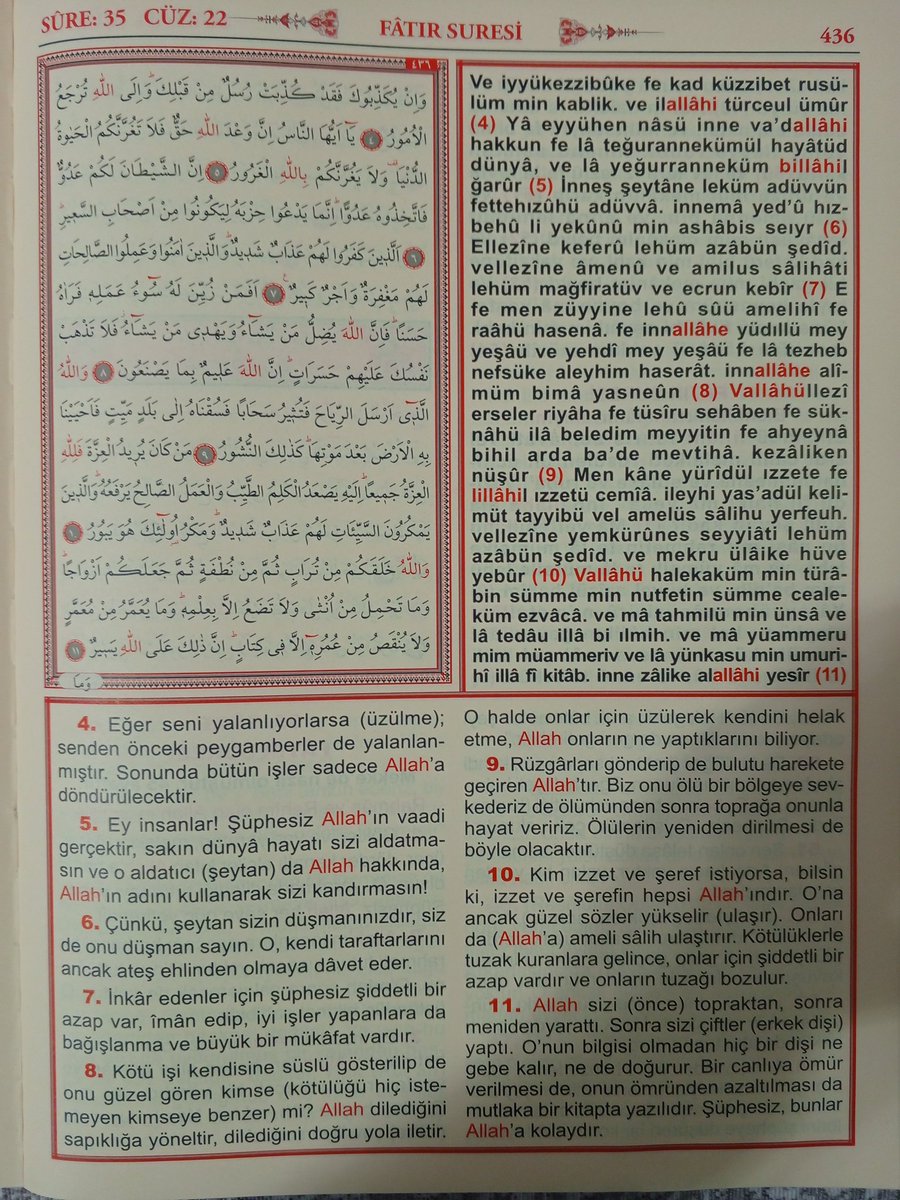 SÛRE: 35 CÜZ: 22
FÂTIR SURESİ
436
٤٣٦
وَاِنْ يُكَذِّبُوكَ فَقَدْ كُذِّبَتْ رُسُلٌ مِنْ قَبْلِكَۜ وَاِلَى اللّٰهِ تُرْجَعُ
الْاُمُورُ ٤ يَٓا اَيُّهَا النَّاسُ اِنَّ وَعْدَ اللّٰهِ حَقٌّ فَلَا تَغُرَّنَّكُمُ الْحَيٰوةُ
الدُّنْيَا۠ وَلَا يَغُرَّنَّكُمْ بِاللّٰهِ الْغَرُورُ ٥ اِنَّ الشَّيْطَانَ لَكُمْ عَدُوٌّ
فَاتَّخِذُوهُ عَدُوًّاۜ اِنَّمَا يَدْعُوا حِزْبَهُ لِيَكُونُوا مِنْ اَصْحَابِ السَّعٖيرِۜ
٦ اَلَّذٖينَ كَفَرُوا لَهُمْ عَذَابٌ شَدٖيدٌۜ وَالَّذٖينَ اٰمَنُوا وَعَمِلُوا الصَّالِحَاتِ
لَهُمْ مَغْفِرَةٌ وَاَجْرٌ كَبٖيرٌ۟ ٧ اَفَمَنْ زُيِّنَ لَهُ سُٓوءُ عَمَلِهٖ فَرَاٰهُ
حَسَنًاۜ فَاِنَّ اللّٰهَ يُضِلُّ مَنْ يَشَٓاءُ وَيَهْدٖي مَنْ يَشَٓاءُۘ فَلَا تَذْهَبْ
نَفْسُكَ عَلَيْهِمْ حَسَرَاتٍۜ اِنَّ اللّٰهَ عَلٖيمٌ بِمَا يَصْنَعُونَ ٨ وَاللّٰهُ
الَّذٖٓي اَرْسَلَ الرِّيَاحَ فَتُثٖيرُ سَحَابًا فَسُقْنَاهُ اِلٰى بَلَدٍ مَيِّتٍ فَاَحْيَيْنَا
بِهِ الْاَرْضَ بَعْدَ مَوْتِهَاۜ كَذٰلِكَ النُّشُورُ ٩ مَنْ كَانَ يُرٖيدُ الْعِزَّةَ فَلِلّٰهِ
الْعِزَّةُ جَمٖيعًاۜ اِلَيْهِ يَصْعَدُ الْكَلِمُ الطَّيِّبُ وَالْعَمَلُ الصَّالِحُ يَرْفَعُهُۜ وَالَّذٖينَ
يَمْكُرُونَ السَّيِّـَٔاتِ لَهُمْ عَذَابٌ شَدٖيدٌۜ وَمَكْرُ اُو۬لٰٓئِكَ هُوَ يَبُورُ ١٠
وَاللّٰهُ خَلَقَكُمْ مِنْ تُرَابٍ ثُمَّ مِنْ نُطْفَةٍ ثُمَّ جَعَلَكُمْ اَزْوَاجًاۜ
وَمَا تَحْمِلُ مِنْ اُنْثٰى وَلَا تَضَعُ اِلَّا بِعِلْمِهٖۜ وَمَا يُعَمَّرُ مِنْ مُعَمَّرٍ
وَلَا يُنْقَصُ مِنْ عُمُرِهٖٓ اِلَّا فٖي كِتَابٍۜ اِنَّ ذٰلِكَ عَلَى اللّٰهِ يَسٖيرٌ ١١
وَمَا
Ve iyyükezzibûke fe kad küzzibet rusü-
lüm min kablik. ve ilallâhi türceul ümûr
(4) Yâ eyyühen nâsü inne va'dallâhi
hakkun fe lâ teğurannekümül hayâtüd
dünyâ, ve lâ yeğurranneküm billâhil
ğarûr (5) İnneş şeytâne leküm adüvvün
fettehızûhü adüvvâ. innemâ yed'û hız-
behû li yekûnû min ashâbis seıyr (6)
Ellezîne keferû lehüm azâbün şedîd.
vellezîne âmenû ve amilus sâlihâti
lehüm mağfiratüv ve ecrun kebîr (7) E
fe men züyyine lehû sûü amelihî fe
raâhü hasenâ. fe innallâhe yüdıllü mey
yeşâü ve yehdî mey yeşâü fe lâ tezheb
nefsüke aleyhim haserât. innallâhe alî-
müm bimâ yasneûn (8) Vallâhüllezî
erseler riyâha fe tüsîru sehâben fe sük-
nâhü ilâ beledim meyyitin fe ahyeynâ
bihil arda ba'de mevtihâ. kezâliken
nüşûr (9) Men kâne yürîdül ızzete fe
lillâhil ızzetü cemîâ. ileyhi yas'adül keli-
müt tayyibü vel amelüs sâlihu yerfeuh.
vellezîne yemkürûnes seyyiâti lehüm
azâbün şedîd. ve mekru ülâike hüve
yebûr (10) Vallâhü halekaküm min türâ-
bin sümme min nutfetin sümme ceale-
küm ezvâcâ. ve mâ tahmilü min ünsâ ve
lâ tedâu illâ bi ılmih. ve mâ yüammeru
mim müammeriv ve lâ yünkasu min umuri-
hî illâ fî kitâb. inne zâlike alallâhi yesîr (11)
4. Eğer seni yalanlıyorlarsa (üzülme);
senden önceki peygamberler de yalanlan-
mıştır. Sonunda bütün işler sadece Allah'a
döndürülecektir.
5. Ey insanlar! Şüphesiz Allah'ın vaadi
gerçektir, sakın dünyâ hayatı sizi aldatma-
sın ve o aldatıcı (şeytan) da Allah hakkında,
Allah'ın adını kullanarak sizi kandırmasın!
6. Çünkü, şeytan sizin düşmanınızdır, siz
de onu düşman sayın. O, kendi taraftarlarını
ancak ateş ehlinden olmaya dâvet eder.
7. İnkâr edenler için şüphesiz şiddetli bir
azap var, îmân edip, iyi işler yapanlara da
bağışlanma ve büyük bir mükâfat vardır.
8. Kötü işi kendisine süslü gösterilip de
onu güzel gören kimse (kötülüğü hiç iste-
meyen kimseye benzer) mi? Allah dilediğini
sapıklığa yöneltir, dilediğini doğru yola iletir.
O halde onlar için üzülerek kendini helak
etme, Allah onların ne yaptıklarını biliyor.
9. Rüzgârları gönderip de bulutu harekete
geçiren Allah'tır. Biz onu ölü bir bölgeye sev-
kederiz de ölümünden sonra toprağa onunla
hayat veririz. Ölülerin yeniden dirilmesi de
böyle olacaktır.
10. Kim izzet ve şeref istiyorsa, bilsin
ki, izzet ve şerefin hepsi Allah'ındır. O'na
ancak güzel sözler yükselir (ulaşır). Onları
da (Allah'a) ameli sâlih ulaştırır. Kötülüklerle
tuzak kuranlara gelince, onlar için şiddetli bir
azap vardır ve onların tuzağı bozulur.
11. Allah sizi (önce) topraktan, sonra
meniden yarattı. Sonra sizi çiftler (erkek dişi)
yaptı. O'nun bilgisi olmadan hiç bir dişi ne
gebe kalır, ne de doğurur. Bir canlıya ömür
verilmesi de, onun ömründen azaltılması da
mutlaka bir kitapta yazılıdır. Şüphesiz, bunlar
Allah'a kolaydır.